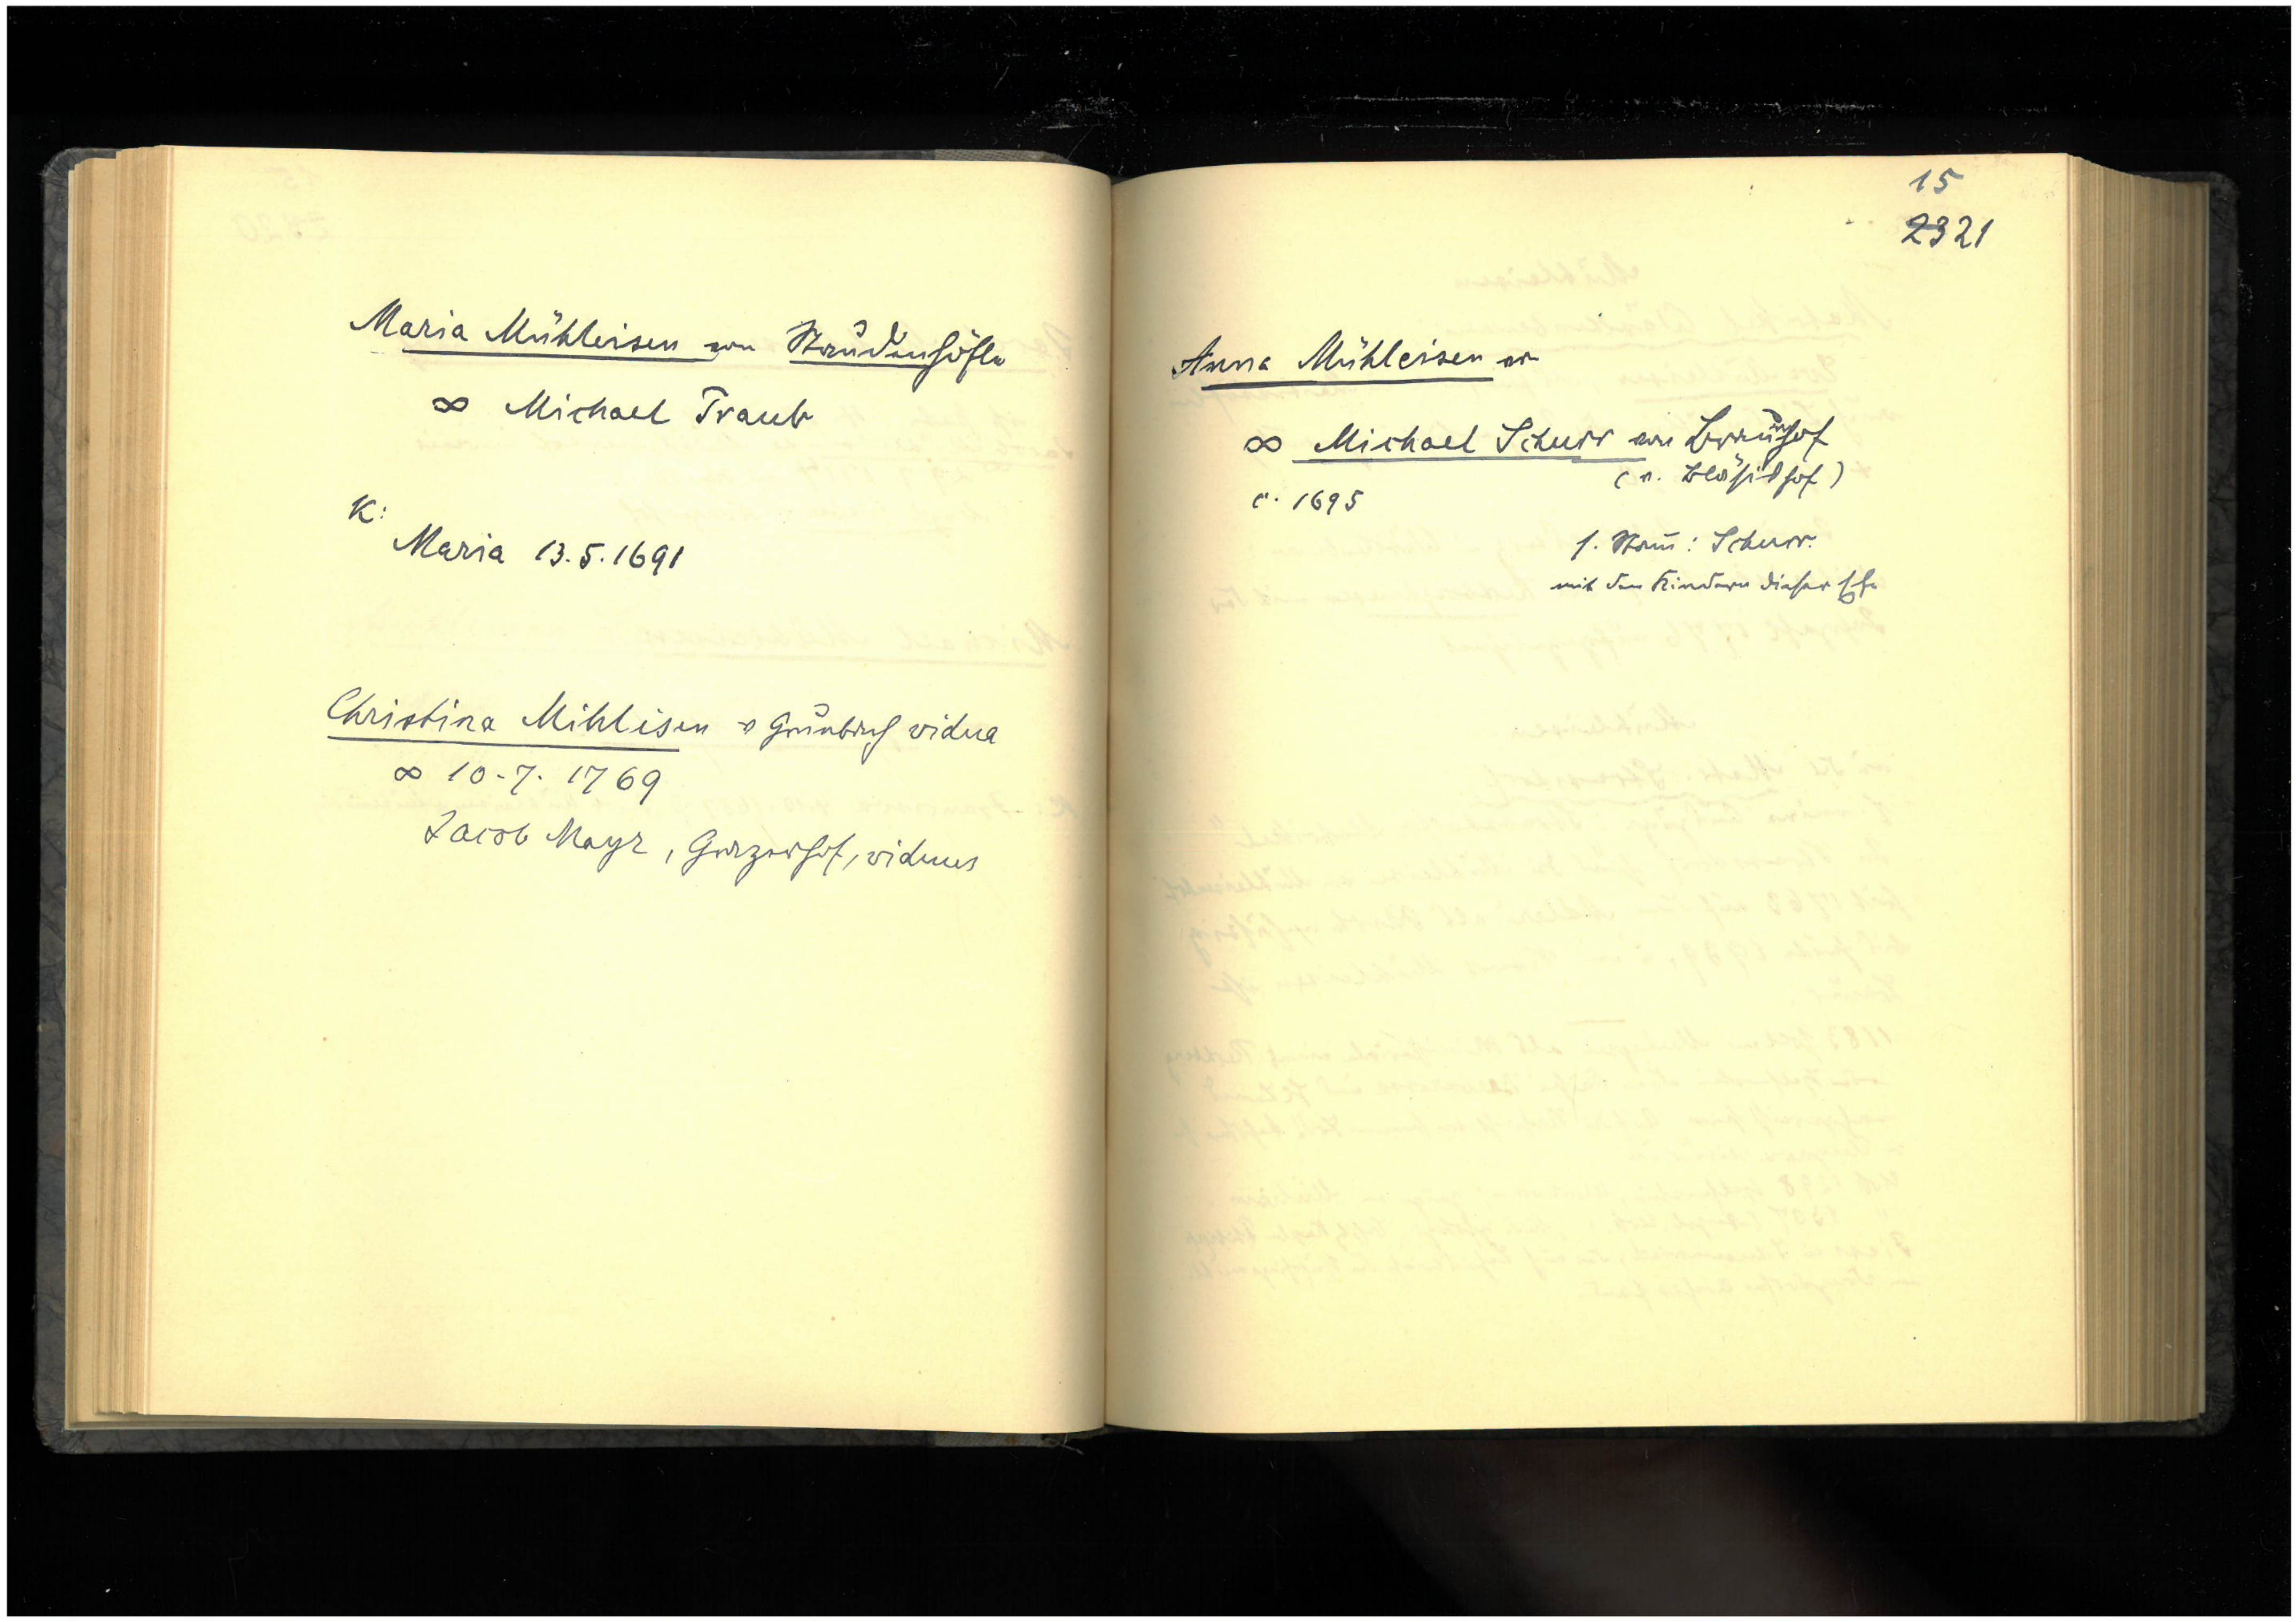 Maria Mühleisen von Staudenhöfle
∞ Michael Traub
K:
Maria 13.5.1691
Christina Mihleisen v Grünbach vidua
∞ 10.7.1769
Jacob Mayr, Gürzerhof, viduus
15
2321
Anna Mühleisen v
∞ Michael Schurr von Braunhof
(v. Bläsishof)
c. 1695
s. Stam: Schurr.
mit den Kindern dieser Ehe